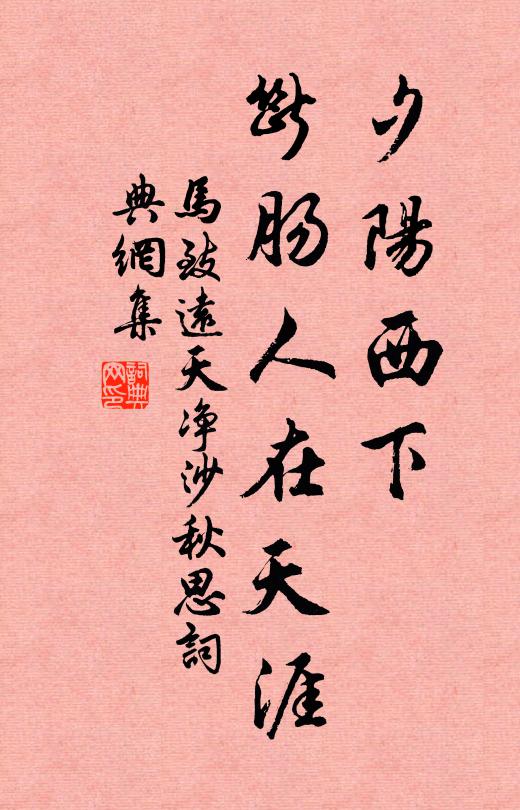 夕陽西下
斷腸人在天涯
馬致遠天净沙秋思詞
典網集
詞典
网印